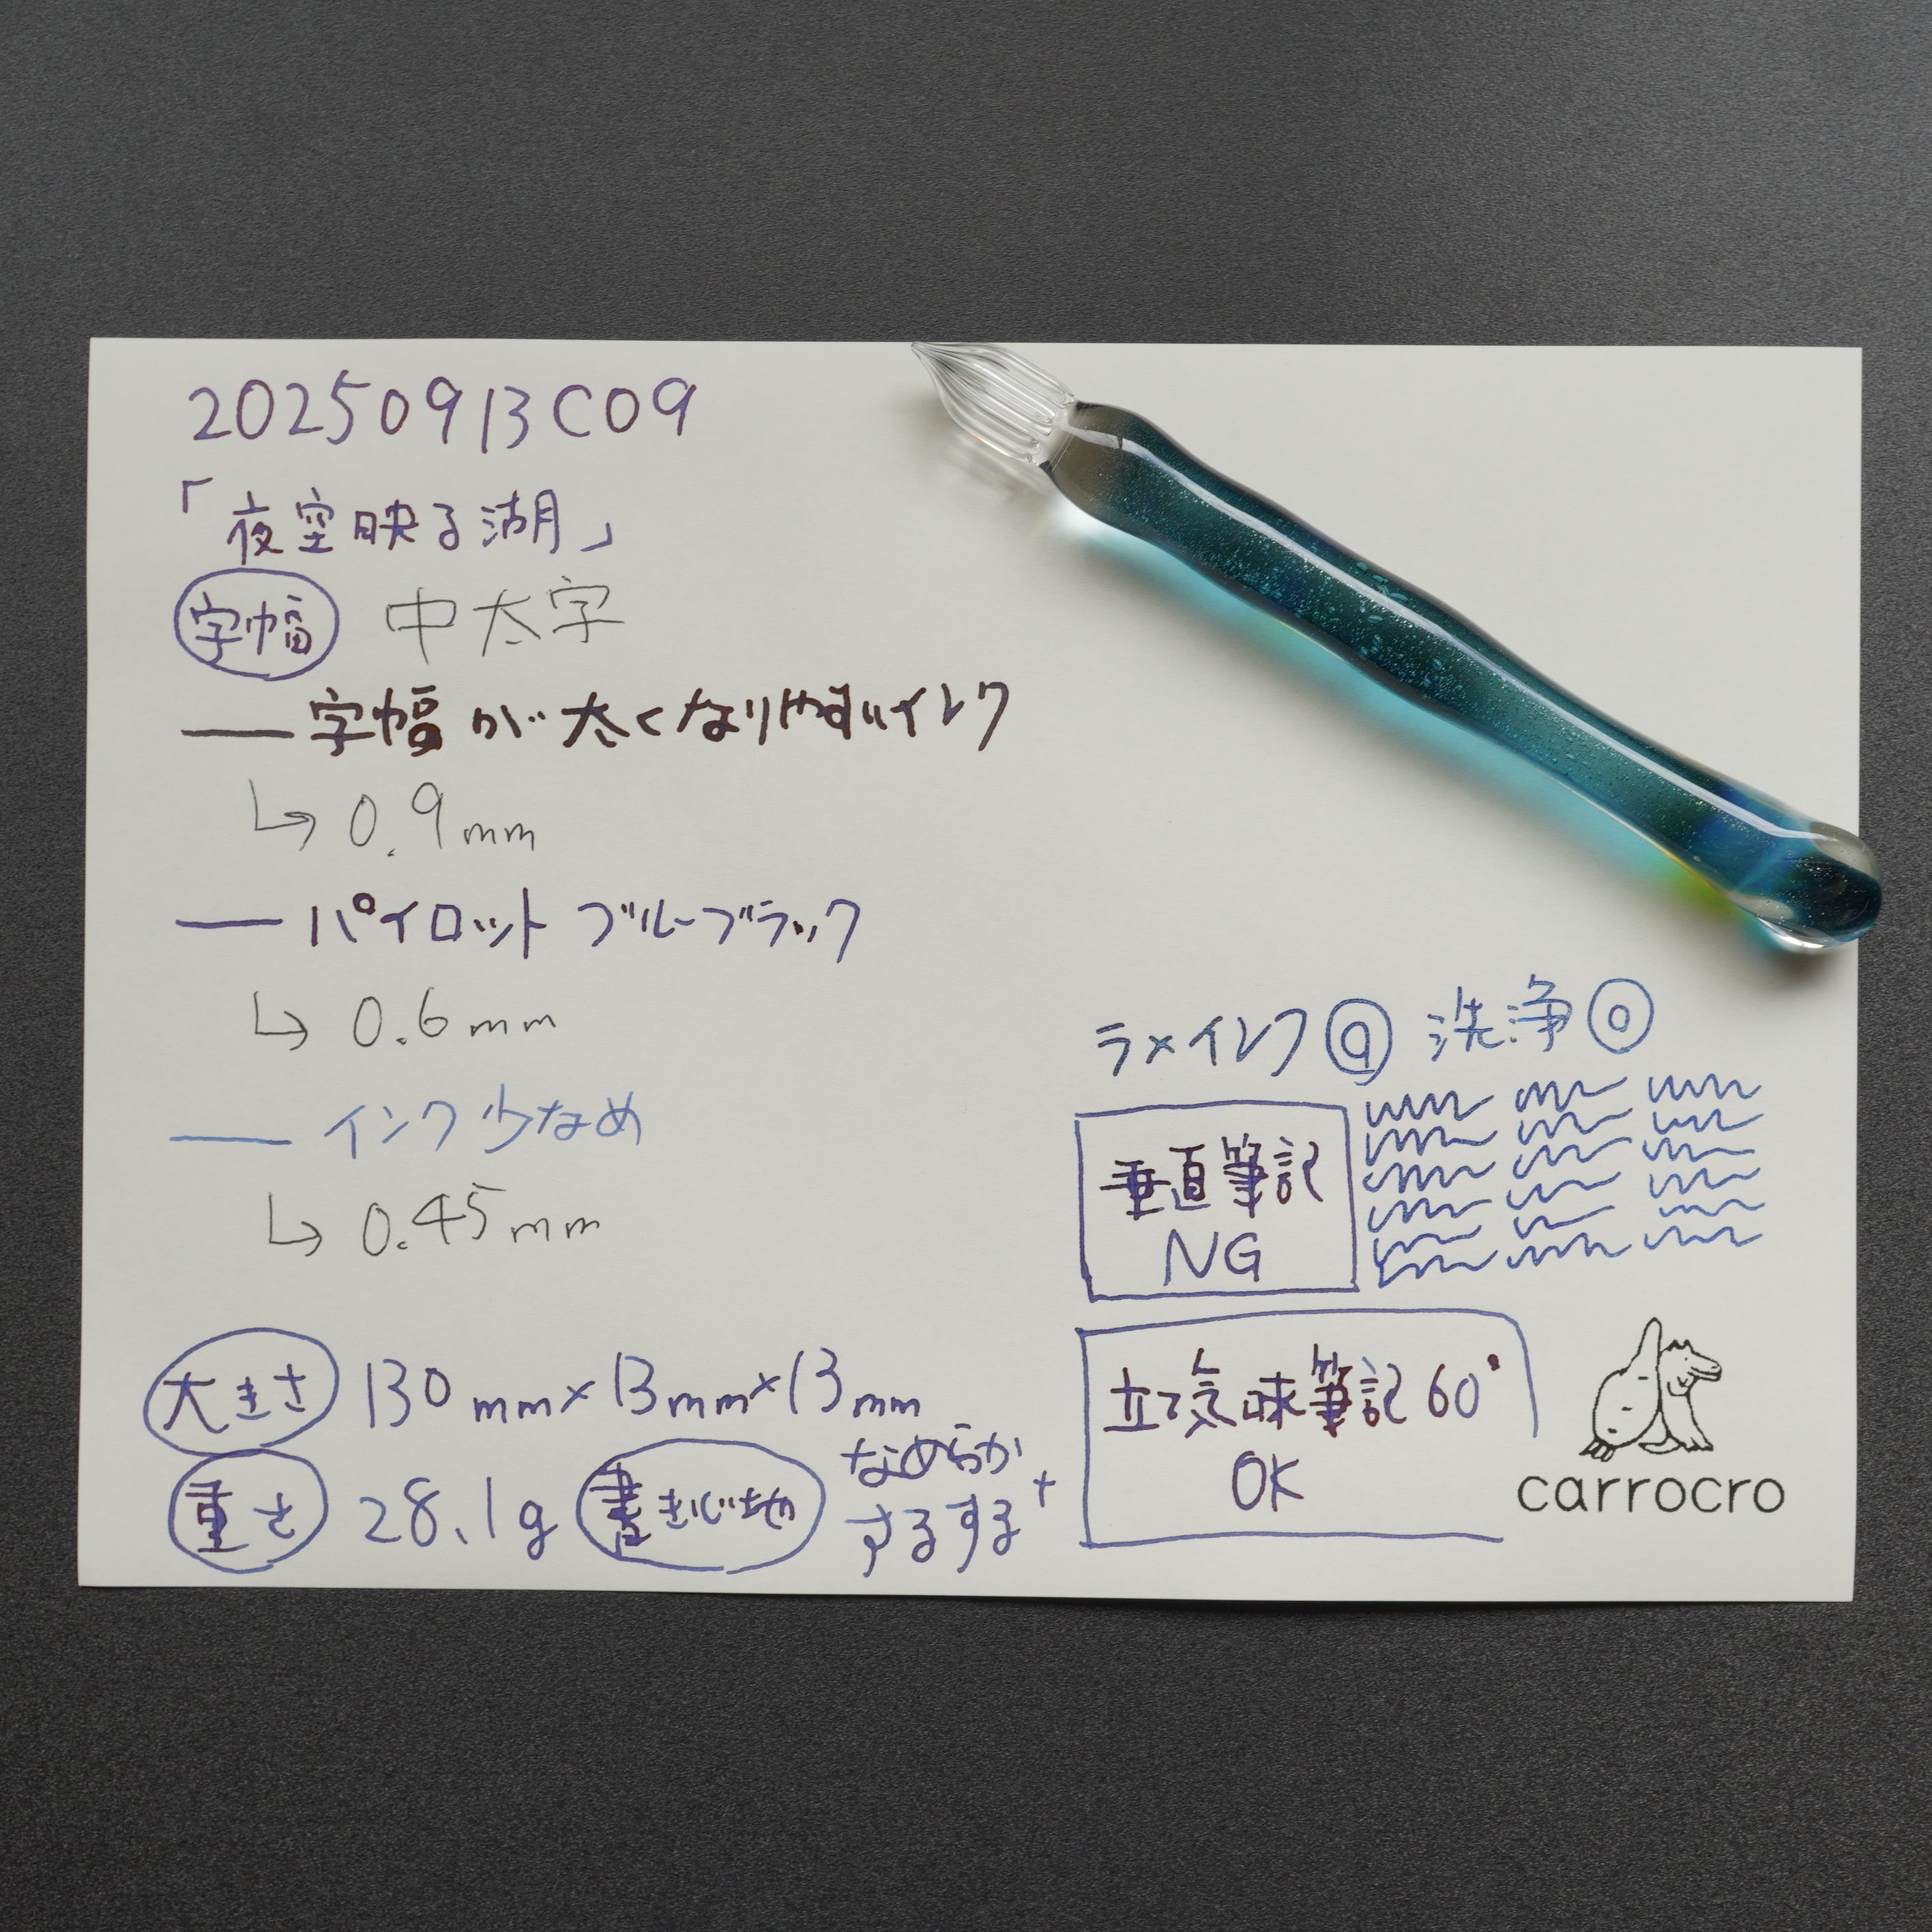 20250913C09
「夜空映る湖」
字幅 中太字
— 字幅が太くなりやすいインク
↳ 0.9mm
— パイロット ブルーブラック
↳ 0.6mm
— インク少なめ
↳ 0.45mm
大きさ 130mm×13mm×13mm
重さ 28.1g 書き心地 なめらか+
するする
ラメインク◎ 洗浄◎
垂直筆記
NG
立て気味筆記60°
OK
carrocro